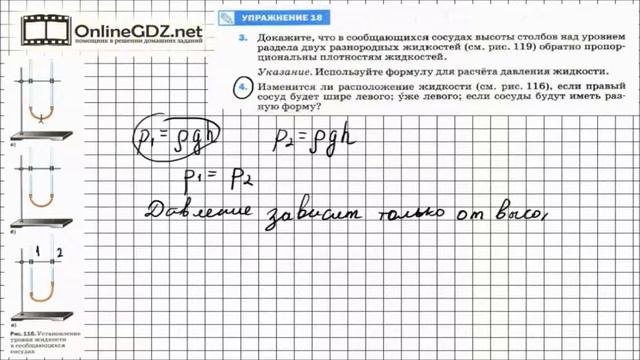 OnlineGDZ.net
помощник в решении домашних заданий
УПРАЖНЕНИЕ 18
3. Докажите, что в сообщающихся сосудах высоты столбов над уровнем
раздела двух разнородных жидкостей (см. рис. 119) обратно пропор-
циональны плотностям жидкостей.
Указание. Используйте формулу для расчёта давления жидкости.
4. Изменится ли расположение жидкости (см. рис. 116), если правый
сосуд будет шире левого; у́же левого; если сосуды будут иметь раз-
ную форму?
p₁ = ρgh p₂ = ρgh
p₁ = p₂
Давление зависит только от высо,
а)
б)
1 2
в)
Рис. 116. Установление
уровня жидкости
в сообщающихся
сосудах